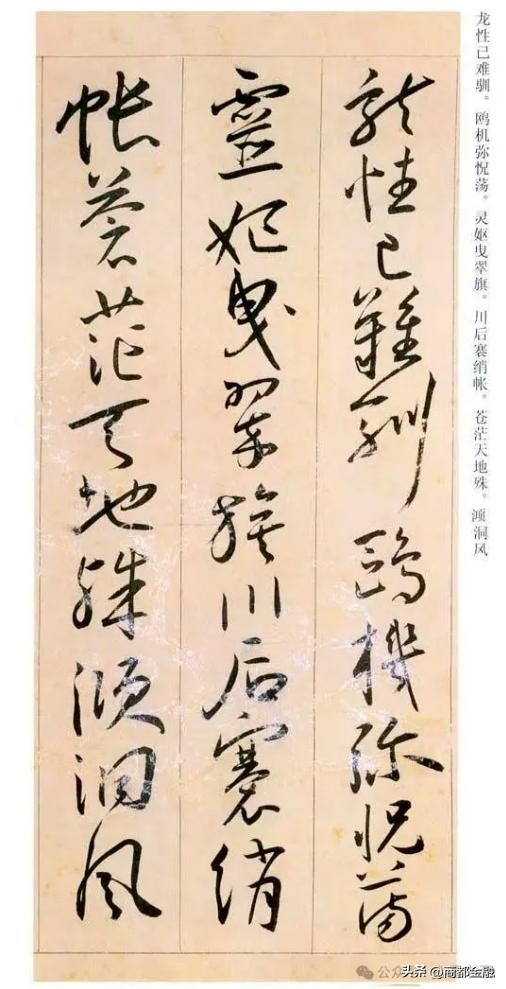 龙性已难驯。鸥机弥怳荡。灵妪曳翠旗。川后褰绡帐。苍茫天地殊。澒洞风
龍性已難馴鷗機弥怳蕩
靈妪曳翠旗川后褰綃
帳蒼茫天地殊澒洞風
公众
头条 @商都金融